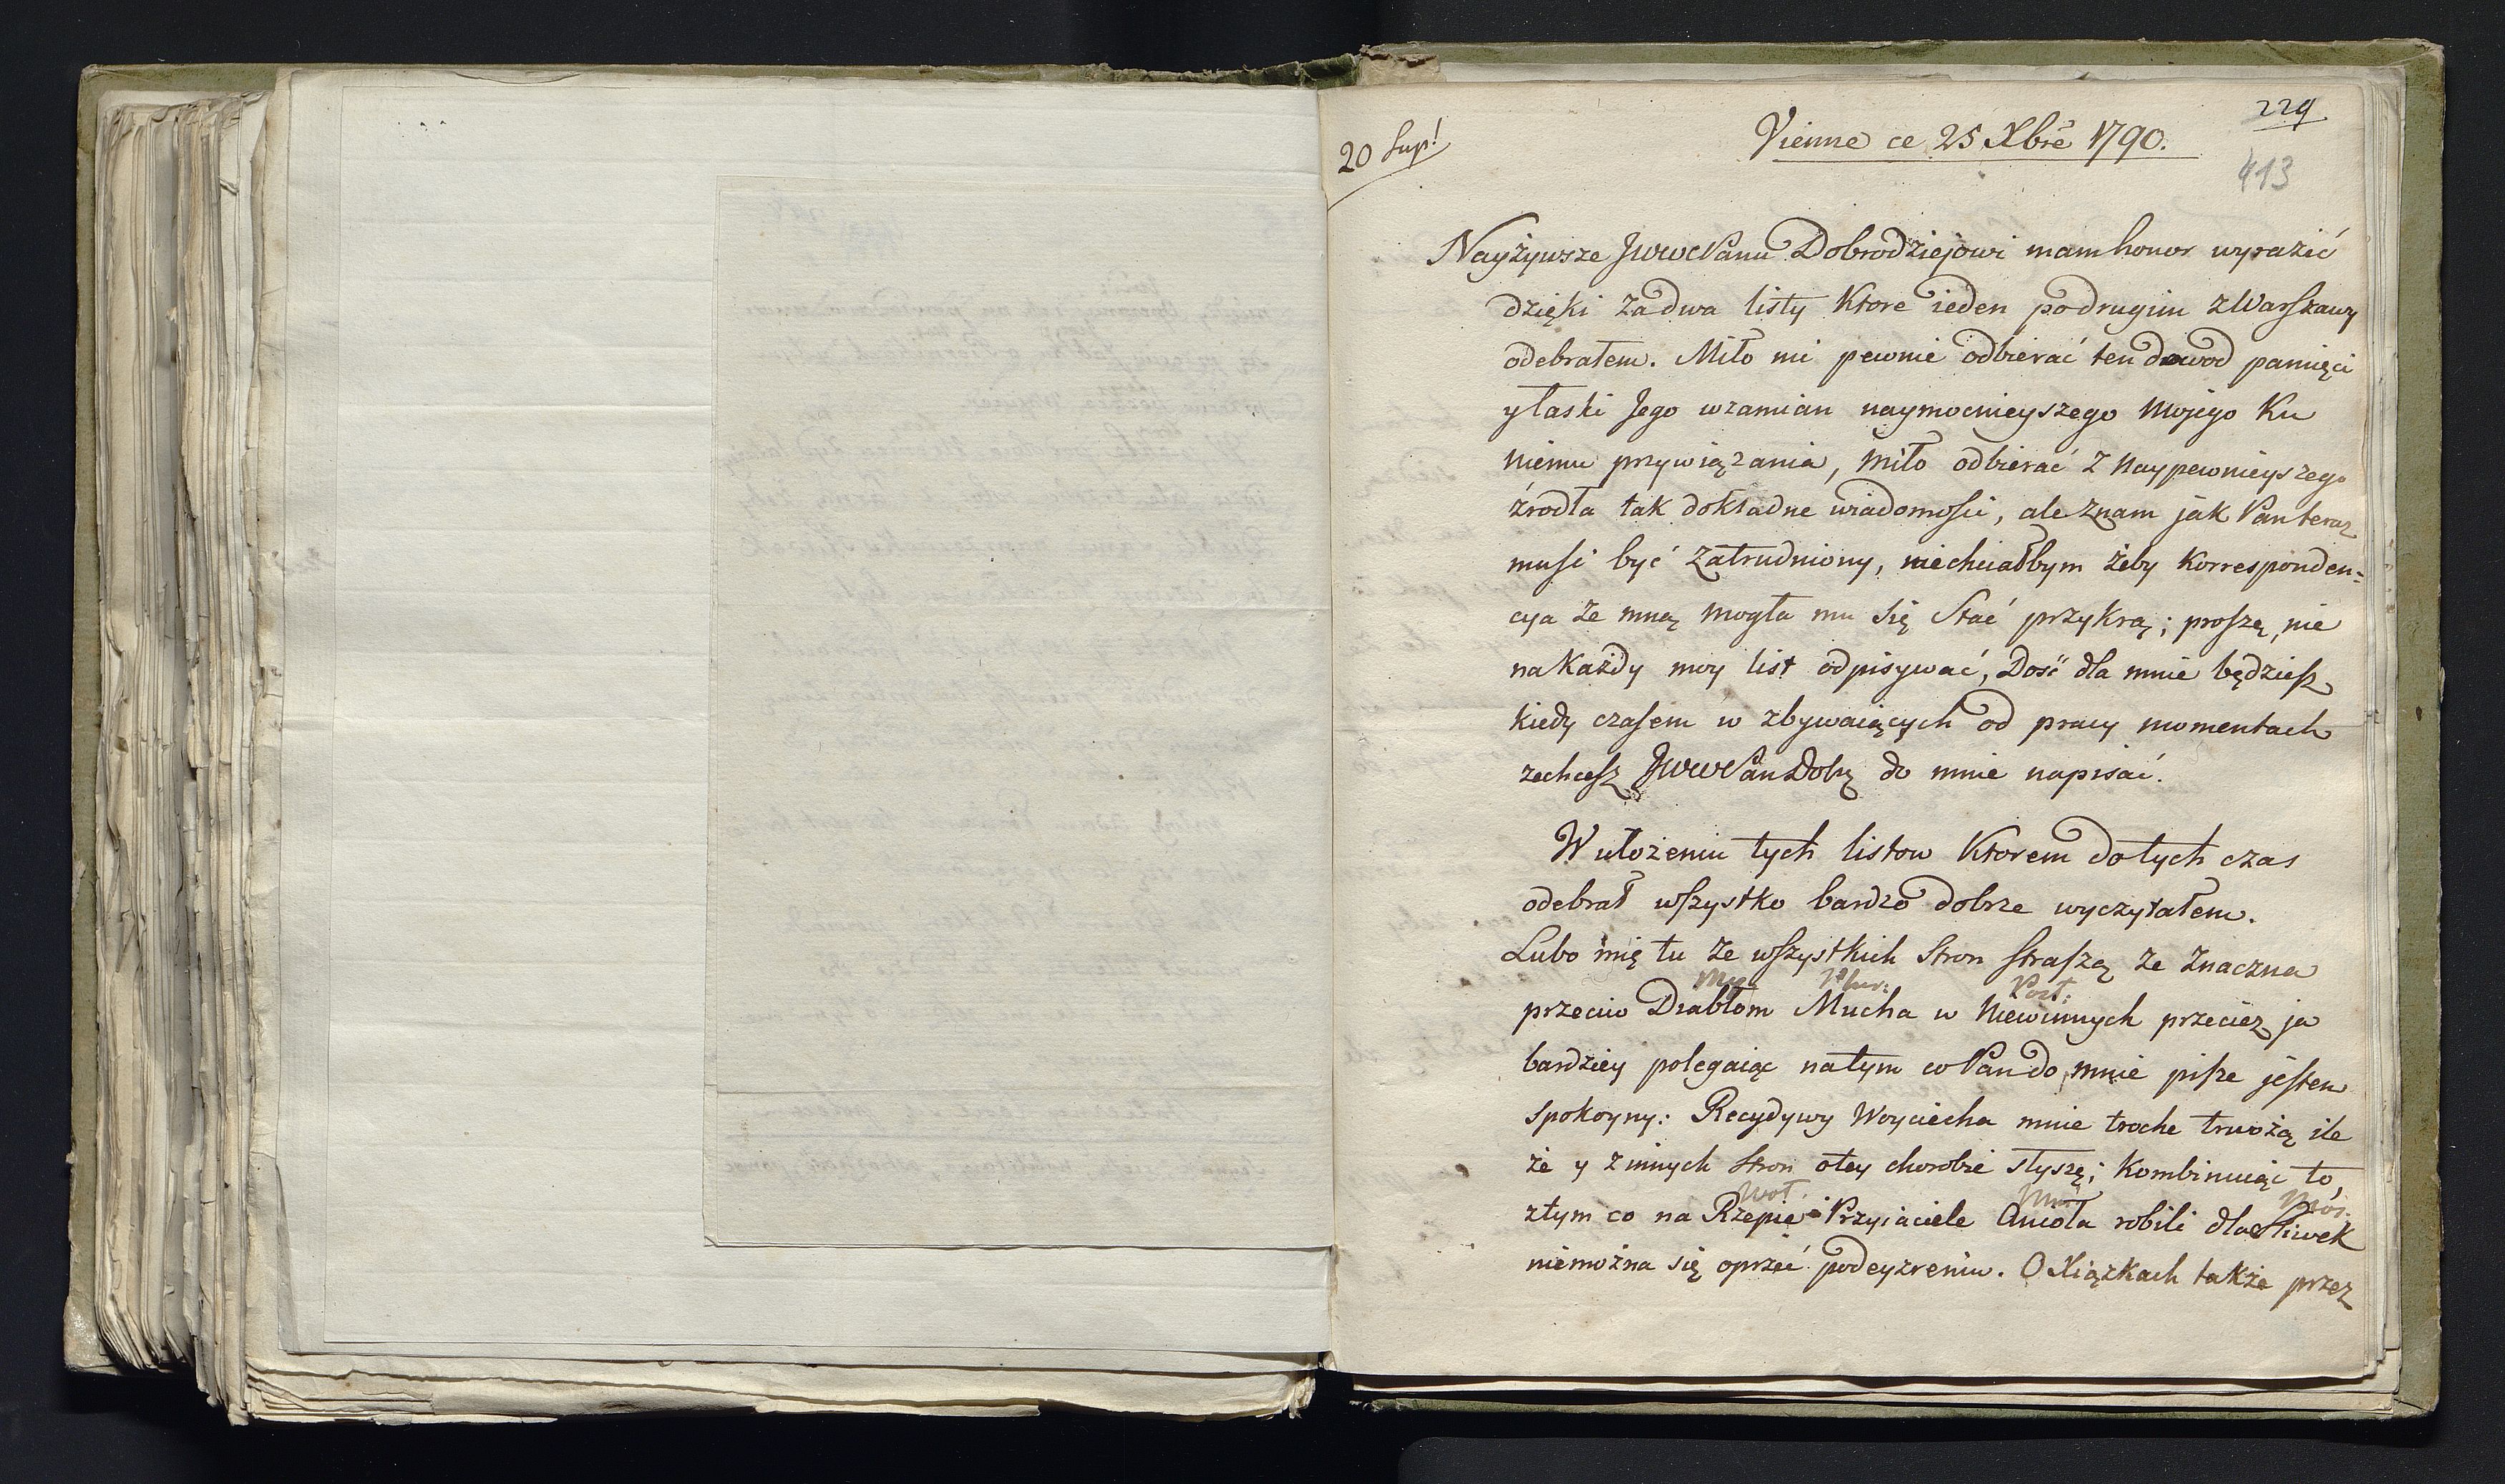 229
20 Sup!
Vienne ce 25 Xbre 1790.
413
Nayżywsze JWWPanu Dobrodziejowi mam honor wyrazić
dzięki za dwa listy Ktore ieden po drugim z Warszawy
odebrałem. Miło mi pewnie odbierać ten dowod pamięci
y łaski Jego wzamian naymocnieyszego Mojego Ku
niemu przywiązania, miło odbierać z naypewnieyszego
źrodła tak dokładne wiadomości, ale znam jak Pan teraz
musi być zatrudniony, niechciałbym żeby Korresponden-
cya ze mną mogła mu się Stać przykrą; proszę nie
na Każdy moy list odpisywać, Dość dla mnie będzie
kiedy czasem w zbywaiących od pracy momentach
zechcesz JWWPan Dobr do mnie napisać.
W ułożeniu tych listow Ktorem dotych czas
odebrał wszystko bardzo dobrze wyczytałem.
Lubo mię tu ze wszystkich Stron straszą że Znaczna
Port:
przeciw Diabłom Mucha w Niewinnych przecież ja
bardziey polegaiąc na tym co Pan do mnie pisze jestem
spokoyny: Recydywy Woyciecha mnie troche trwożą ile
że y z innych Stron o tey chorobie słyszę; Kombinuiąc to,
Woł. Mos.
z tym co na Rzepie Przyiaciele Anioła robili dla Śliwek
niemożna się oprzeć podeyzreniu. O Xiążkach także przez